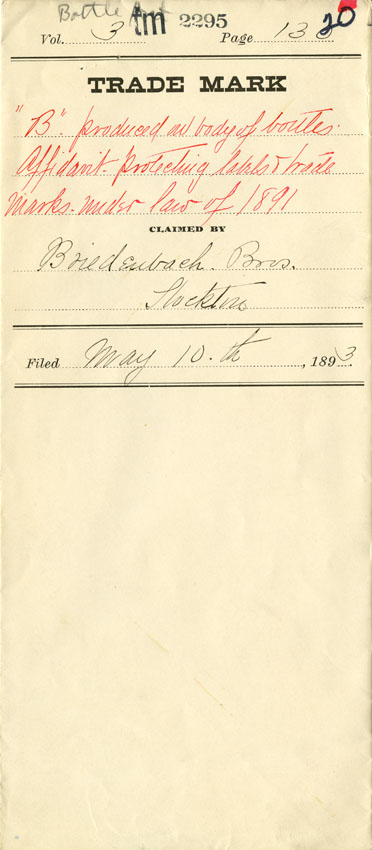 Bottle
tm 2295
20
Vol. 3 Page 13
TRADE MARK
"B". produced on body of bottles.
Affidavit protecting labels & trade
marks under law of 1891
CLAIMED BY
Briedenbach Bros.
Stockton
Filed May 10.th, 1893.